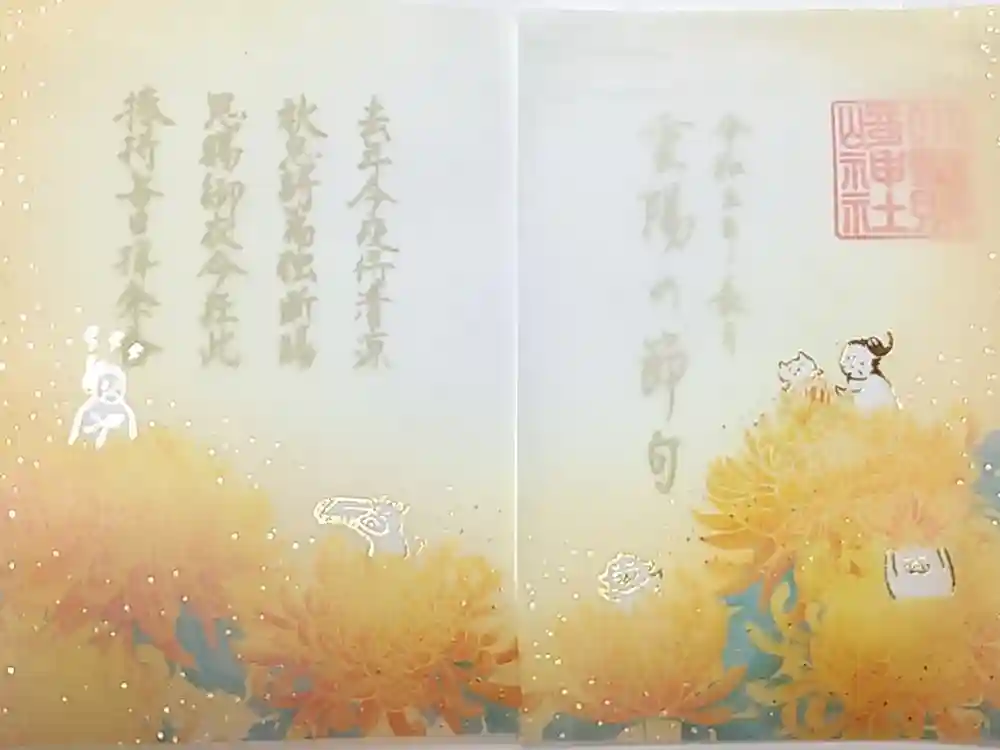 小野照
崎神社
令和五年 長月
重陽の節句
去年今夜侍清涼
秋思詩篇独断腸
恩賜御衣今在此
捧持毎日拝余香